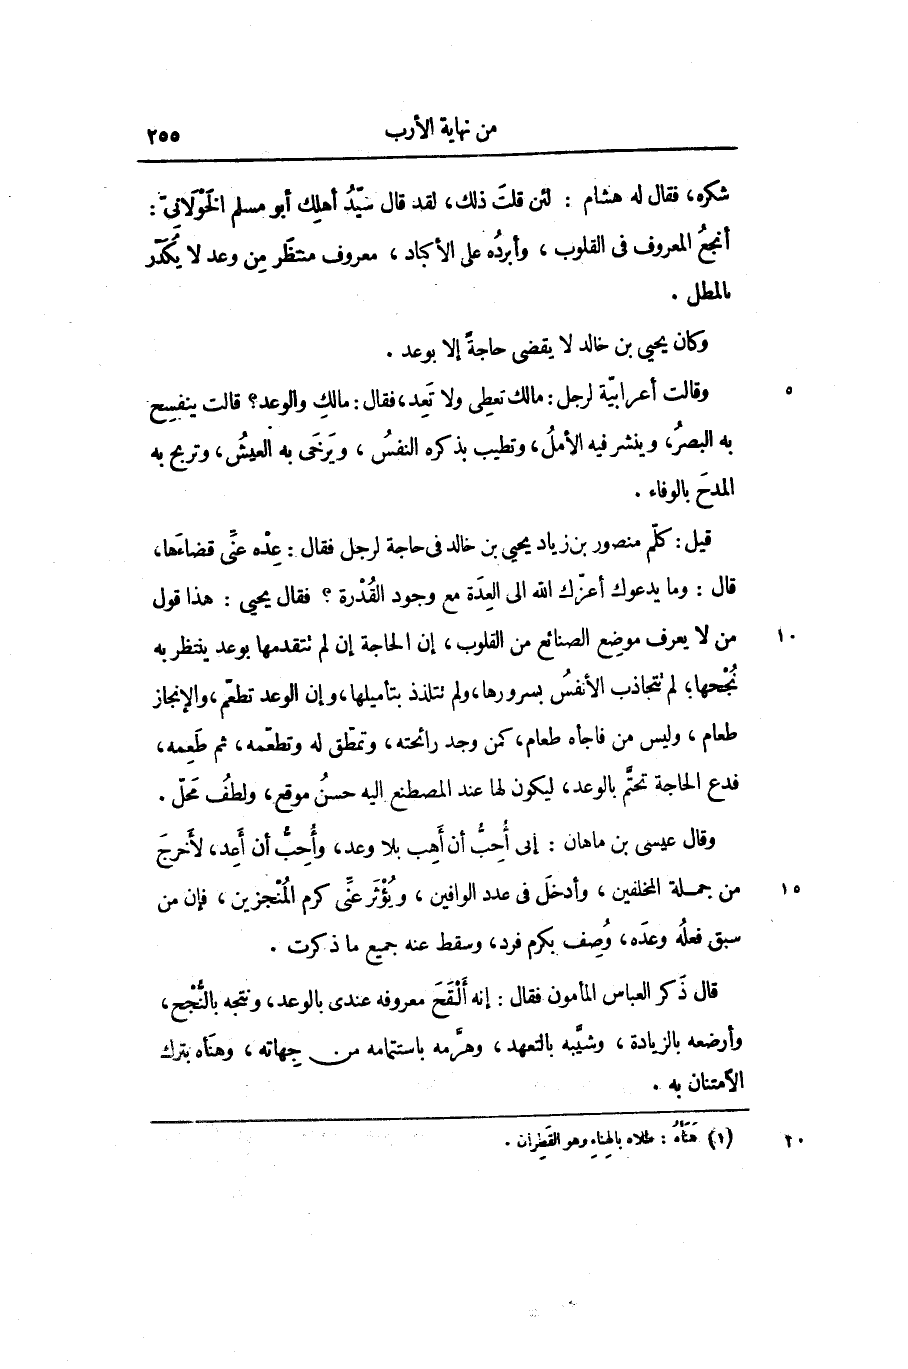 من نهاية الأرب ٢٥٥
شكره، فقال له هشام : لئن قلتَ ذلك، لقد قال سيّدُ أهلك أبو مسلم الخَوْلَانِيّ :
أنجعُ المعروف فى القلوب ، وأبردُه على الأكباد ، معروف منتظَر مِن وعد لا يُكَدّر
بالمطل .
وكان يحيى بن خالد لا يقضى حاجةً إلا بوعد .
وقالت أعرابيّة لرجل : مالك تعطِى ولا تَعِد، فقال : مالكِ والوعد؟ قالت ينفسح ٥
به البصرُ، وينشر فيه الأملُ، وتطيب بذكره النفسُ ، ويَرخَى به العيشُ، وتربح به
المدحَ بالوفاء .
قيل : كلّم منصور بن زياد يحيى بن خالد فى حاجة لرجل فقال : عِدْه عنِّى قضاءَها،
قال : وما يدعوك أعزّك الله الى العِدَة مع وجود القُدْرة ؟ فقال يحيى : هذا قول
من لا يعرف موضِع الصنائع من القلوب ، إن الحاجة إن لم تتقدمها بوعد ينتظر به ١٠
نُجْحها، لم تتجاذب الأنفسُ بسرورها، ولم تتلذذ بتأميلها، وإن الوعد تطعّم ، والإنجاز
طعام ، وليس من فاجأه طعام، كمن وجد رائحته ، وتمطّق له وتطعّمه ، ثم طَعِمه ،
فدع الحاجة تحتَّم بالوعد ، ليكون لها عند المصطنع اليه حسنُ موقع ، ولطفُ محَلّ .
وقال عيسى بن ماهان : إنى أُحِبُّ أن أَهِب بلا وعد، وأُحِبُّ أن أَعِد، لأَخرجَ
من جملة المخلفين ، وأدخلَ فى عدد الوافين ، ويُؤْثَر عنِّى كرم المُنْجِزين ، فإن من ١٥
سبق فعلُه وعدَه، وُصِف بكرم فرد، وسقط عنه جميع ما ذكرت .
قال ذَكر العباس المأمون فقال : إنه أَلْقَحَ معروفه عندى بالوعد، ونتجه بالنُّجْح،
وأرضعه بالزيادة ، وشيَّبه بالتعهد ، وهرَّمه باستتمامه من جِهاته ، وهنَأه بترك
الآمتنان به .
(١) هَنَأهُ : طلاه بالهِناء وهو القَطِران . ٢٠